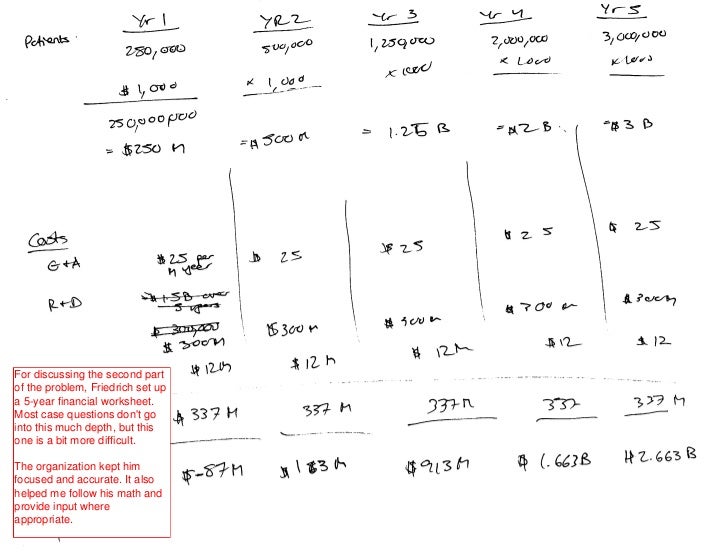 Yr 1 YR 2 Yr 3 Yr 4 Yr 5
Patients 250,000 500,000 1,250,000 2,000,000 3,000,000
$ 1,000 x 1,000 x 1000 x 1,000 x 1000
250,000,000
= $250 M = $500 M = 1.25 B = $2 B = $3 B
Costs
G+A $25 per M year $ 25 $ 25 $ 25 $ 25
R+D $1.5B over 5 years
$ 300,000
$ 300M $300M $ 300M $ 300 M $ 300M
$12M $12 M $ 12M $12 $ 12
$ 337 M 337 M 337M 337 337 M
$-87M $163M $913M $ 1.663B $2.663B
For discussing the second part
of the problem, Friedrich set up
a 5-year financial worksheet.
Most case questions don't go
into this much depth, but this
one is a bit more difficult.
The organization kept him
focused and accurate. It also
helped me follow his math and
provide input where
appropriate.